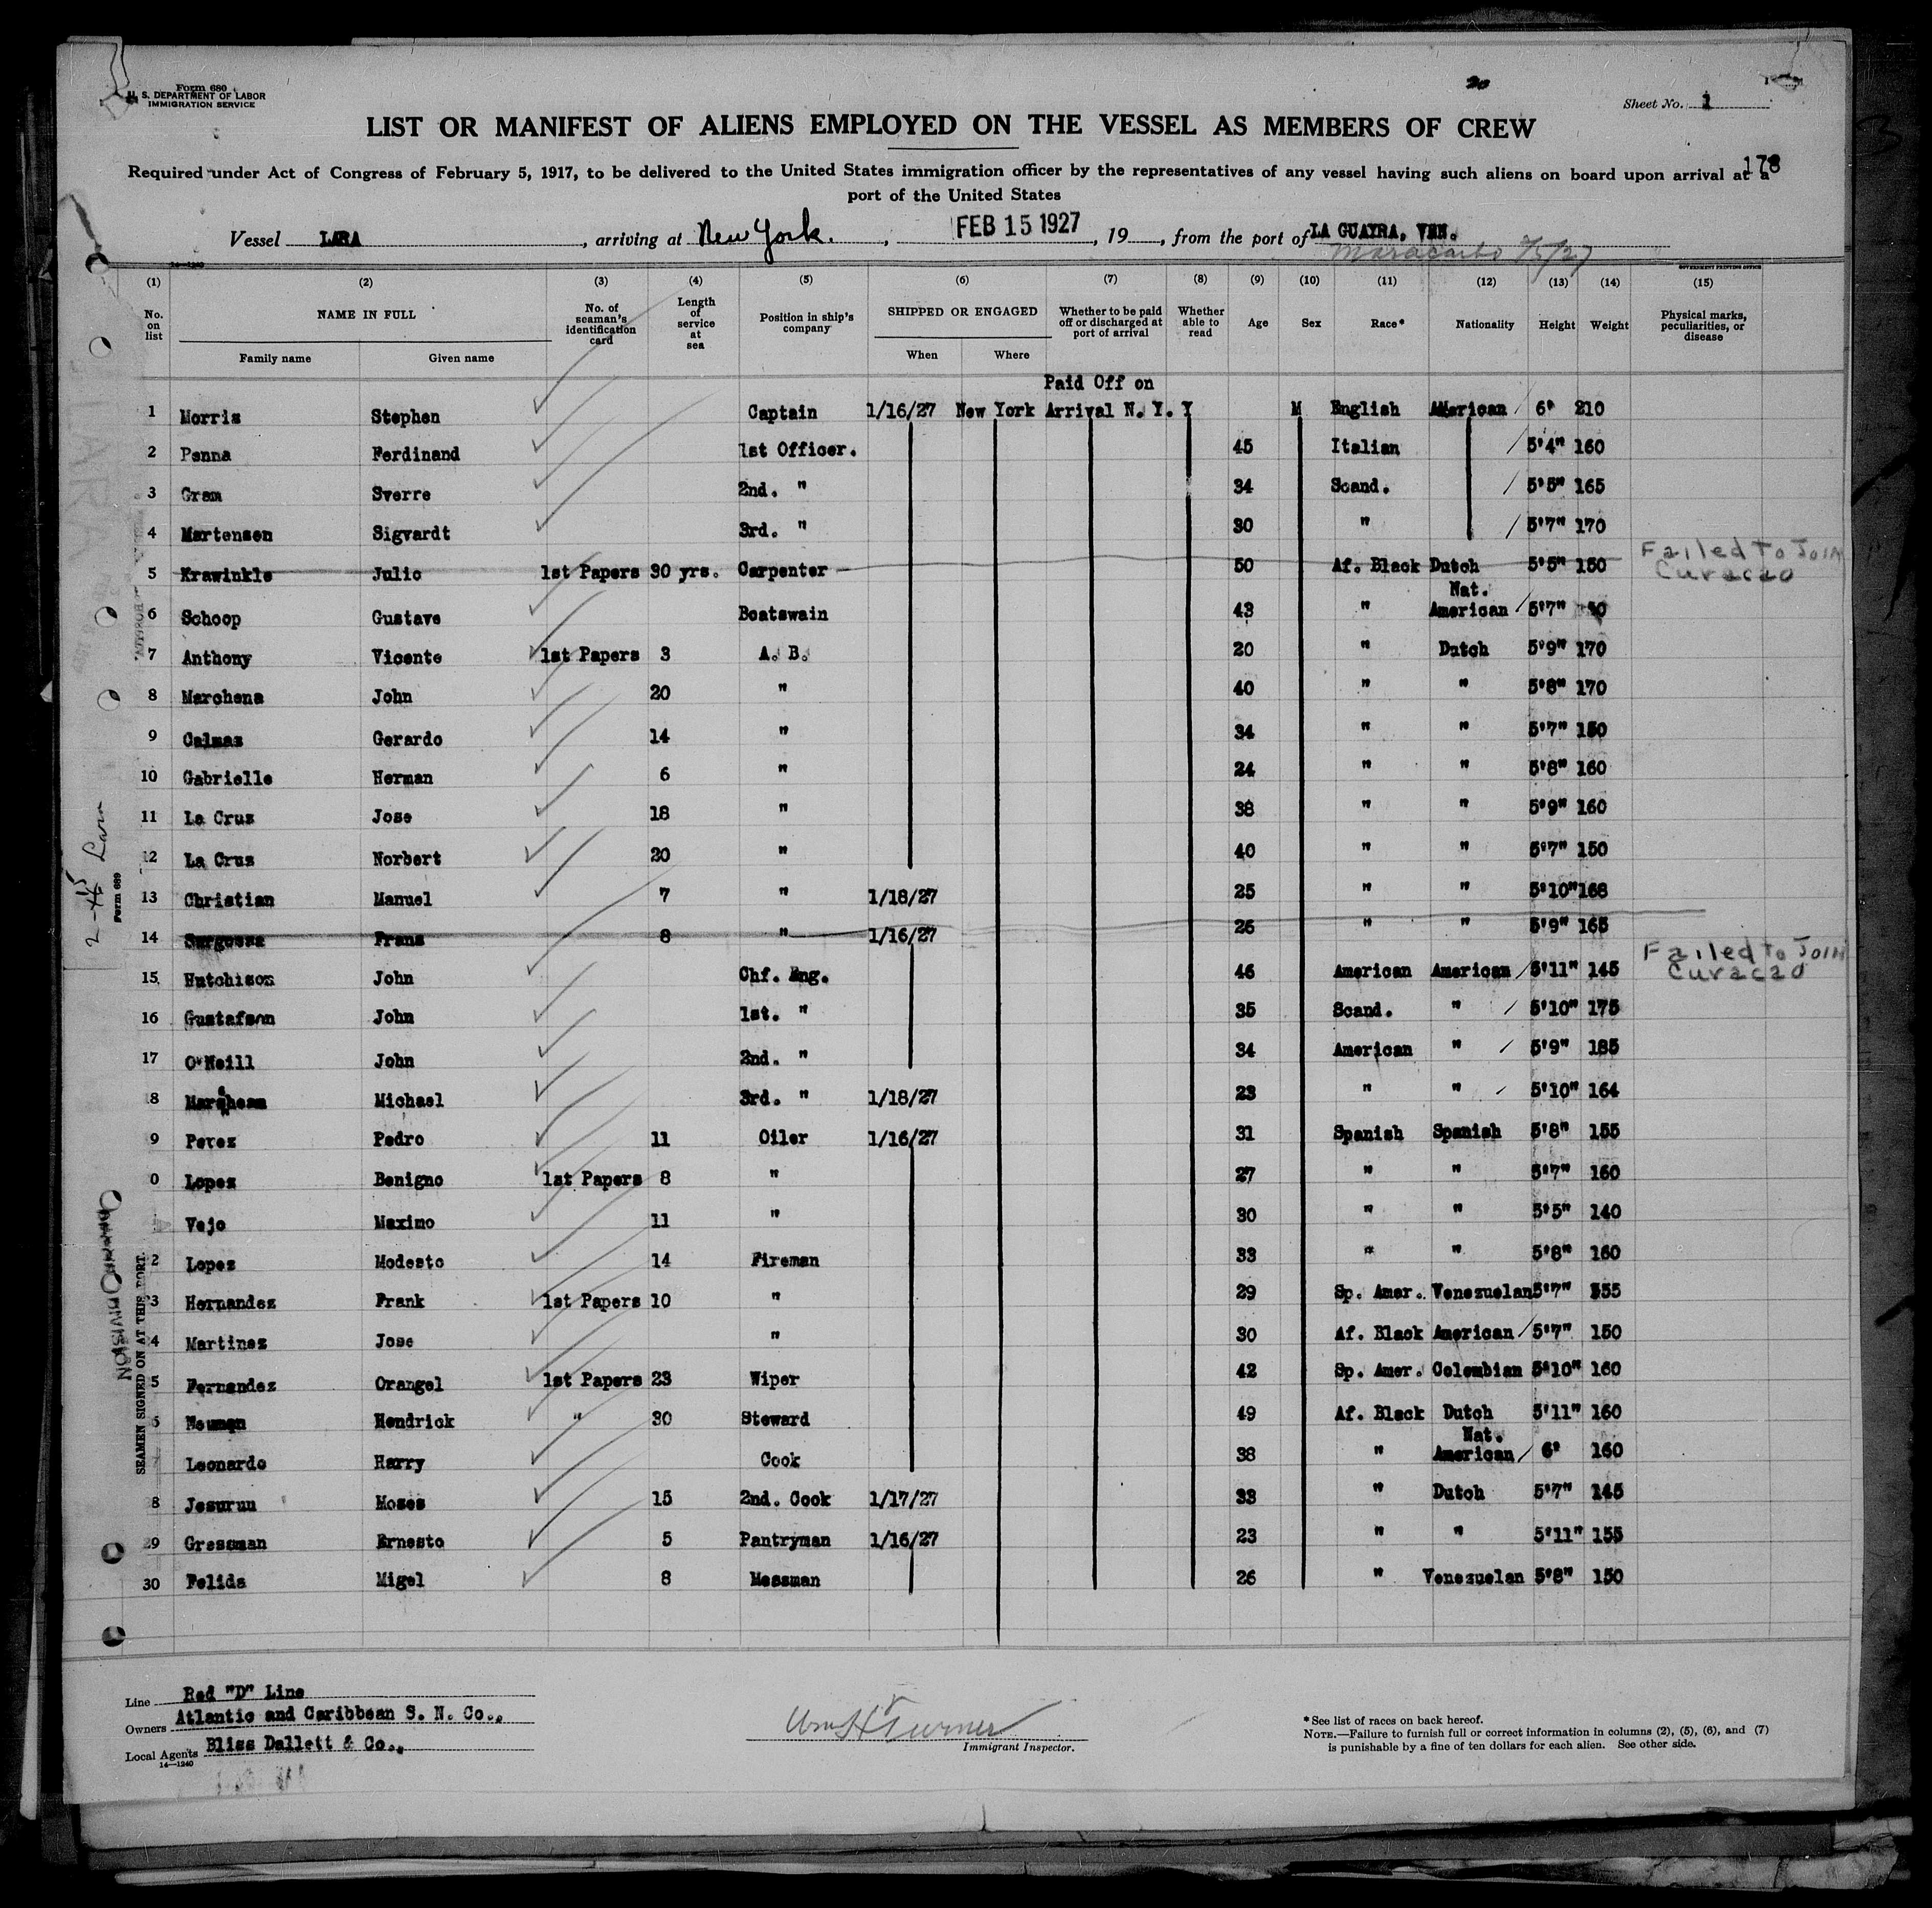 Form 680
U. S. DEPARTMENT OF LABOR
IMMIGRATION SERVICE
20
Sheet No. 1
LIST OR MANIFEST OF ALIENS EMPLOYED ON THE VESSEL AS MEMBERS OF CREW
178
Required under Act of Congress of February 5, 1917, to be delivered to the United States immigration officer by the representatives of any vessel having such aliens on board upon arrival at a
port of the United States
Vessel LARA, arriving at New York., FEB 15 1927, 19, from the port of LA GUAYRA, VEN.
Maracaibo 2/5/27
14—1240 GOVERNMENT PRINTING OFFICE
(1) (2) (3) (4) (5) (6) (7) (8) (9) (10) (11) (12) (13) (14) (15)
No. on list NAME IN FULL Family name Given name No. of seaman's identification card Length of service at sea Position in ship's company SHIPPED OR ENGAGED When Where Whether to be paid off or discharged at port of arrival Whether able to read Age Sex Race* Nationality Height Weight Physical marks, peculiarities, or disease
Paid Off on
1 Morris Stephen Captain 1/16/27 New York Arrival N. Y. Y M English American 6' 210
2 Penna Ferdinand 1st Officer. 45 Italian 5'4" 160
3 Gram Sverre 2nd. " 34 Scand. 5'5" 165
4 Martensen Sigvardt 3rd. " 30 " 5'7" 170
5 Krawinkle Julio 1st Papers 30 yrs. Carpenter 50 Af. Black Dutch 5'5" 150 Failed To Join Curacao
Nat.
6 Schoop Gustave Boatswain 43 " American 5'7"
7 Anthony Vicente 1st Papers 3 A. B. 20 " Dutch 5'9" 170
8 Marchena John 20 " 40 " " 5'8" 170
9 Calmaz Gerardo 14 " 34 " " 5'7" 150
10 Gabrielle Herman 6 " 24 " " 5'8" 160
11 La Cruz Jose 18 " 38 " " 5'9" 160
12 La Cruz Norbert 20 " 40 " " 5'7" 150
13 Christian Manuel 7 " 1/18/27 25 " " 5'10" 168
14 Frans 8 " 1/16/27 26 " " 5'9" 165 Failed To Join Curacao
15 Hutchison John Chf. Eng. 46 American American 5'11" 145
16 Gustafson John 1st. " 35 Scand. " 5'10" 175
17 O'Neill John 2nd. " 34 American " 5'9" 185
8 Michael 3rd. " 1/18/27 23 " " 5'10" 164
9 Perez Pedro 11 Oiler 1/16/27 31 Spanish Spanish 5'8" 155
0 Lopez Benigno 1st Papers 8 " 27 " " 5'7" 160
Vejo Maximo 11 " 30 " " 5'5" 140
2 Lopez Modesto 14 Fireman 33 " " 5'8" 160
3 Hernandez Frank 1st Papers 10 " 29 Sp. Amer. Venezuelan 5'7" 155
4 Martinez Jose " 30 Af. Black American 5'7" 150
5 Fernandez Orangel 1st Papers 23 Wiper 42 Sp. Amer. Colombian 5'10" 160
6 Neuman Hendrick " 30 Steward 49 Af. Black Dutch 5'11" 160
Nat.
Leonardo Harry Cook 38 " American 6' 160
8 Jesurun Moses 15 2nd. Cook 1/17/27 33 " Dutch 5'7" 145
29 Gressman Ernesto 5 Pantryman 1/16/27 23 " " 5'11" 155
30 Felida Migel 8 Messman 26 " Venezuelan 5'8" 150
2-15 Lara
Form 689
SEAMEN SIGNED ON AT THIS PORT.
DIVISION
Line Red "D" Line
Owners Atlantic and Caribbean S. N. Co.,
Local Agents Bliss Dallett & Co.,
14—1240
Wm H Turner
Immigrant Inspector.
*See list of races on back hereof.
NOTE.—Failure to furnish full or correct information in columns (2), (5), (6), and (7)
is punishable by a fine of ten dollars for each alien. See other side.